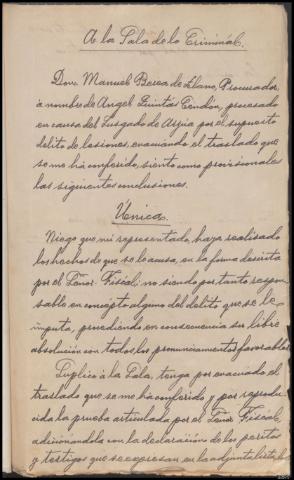 A la Sala de lo Criminal.
Don Manuel Berea de Llano, Procurador,
a nombre de Angel Quintás Cendón, procesado
en causa del Juzgado de Arzúa por el supuesto
delito de lesiones, evacuando el traslado que
se me ha conferido, siento como provisionales
las siguientes conclusiones.
Única.
Niego que mi representado, haya realizado
los hechos de que se le acusa, en la forma descrita
por el Señor Fiscal; no siendo por tanto respon
sable en concepto alguno del delito que se le
imputa, procediendo en consecuencia su libre
absolución con todos los pronunciamientos favorables.
Suplico á la Sala, tenga por evacuado el
traslado que se me ha conferido y por reprodu-
cida la prueba articulada por el Señor Fiscal,
adicionándola con la declaración de los peritos
y testigos que se expresan en la adjunta lista,